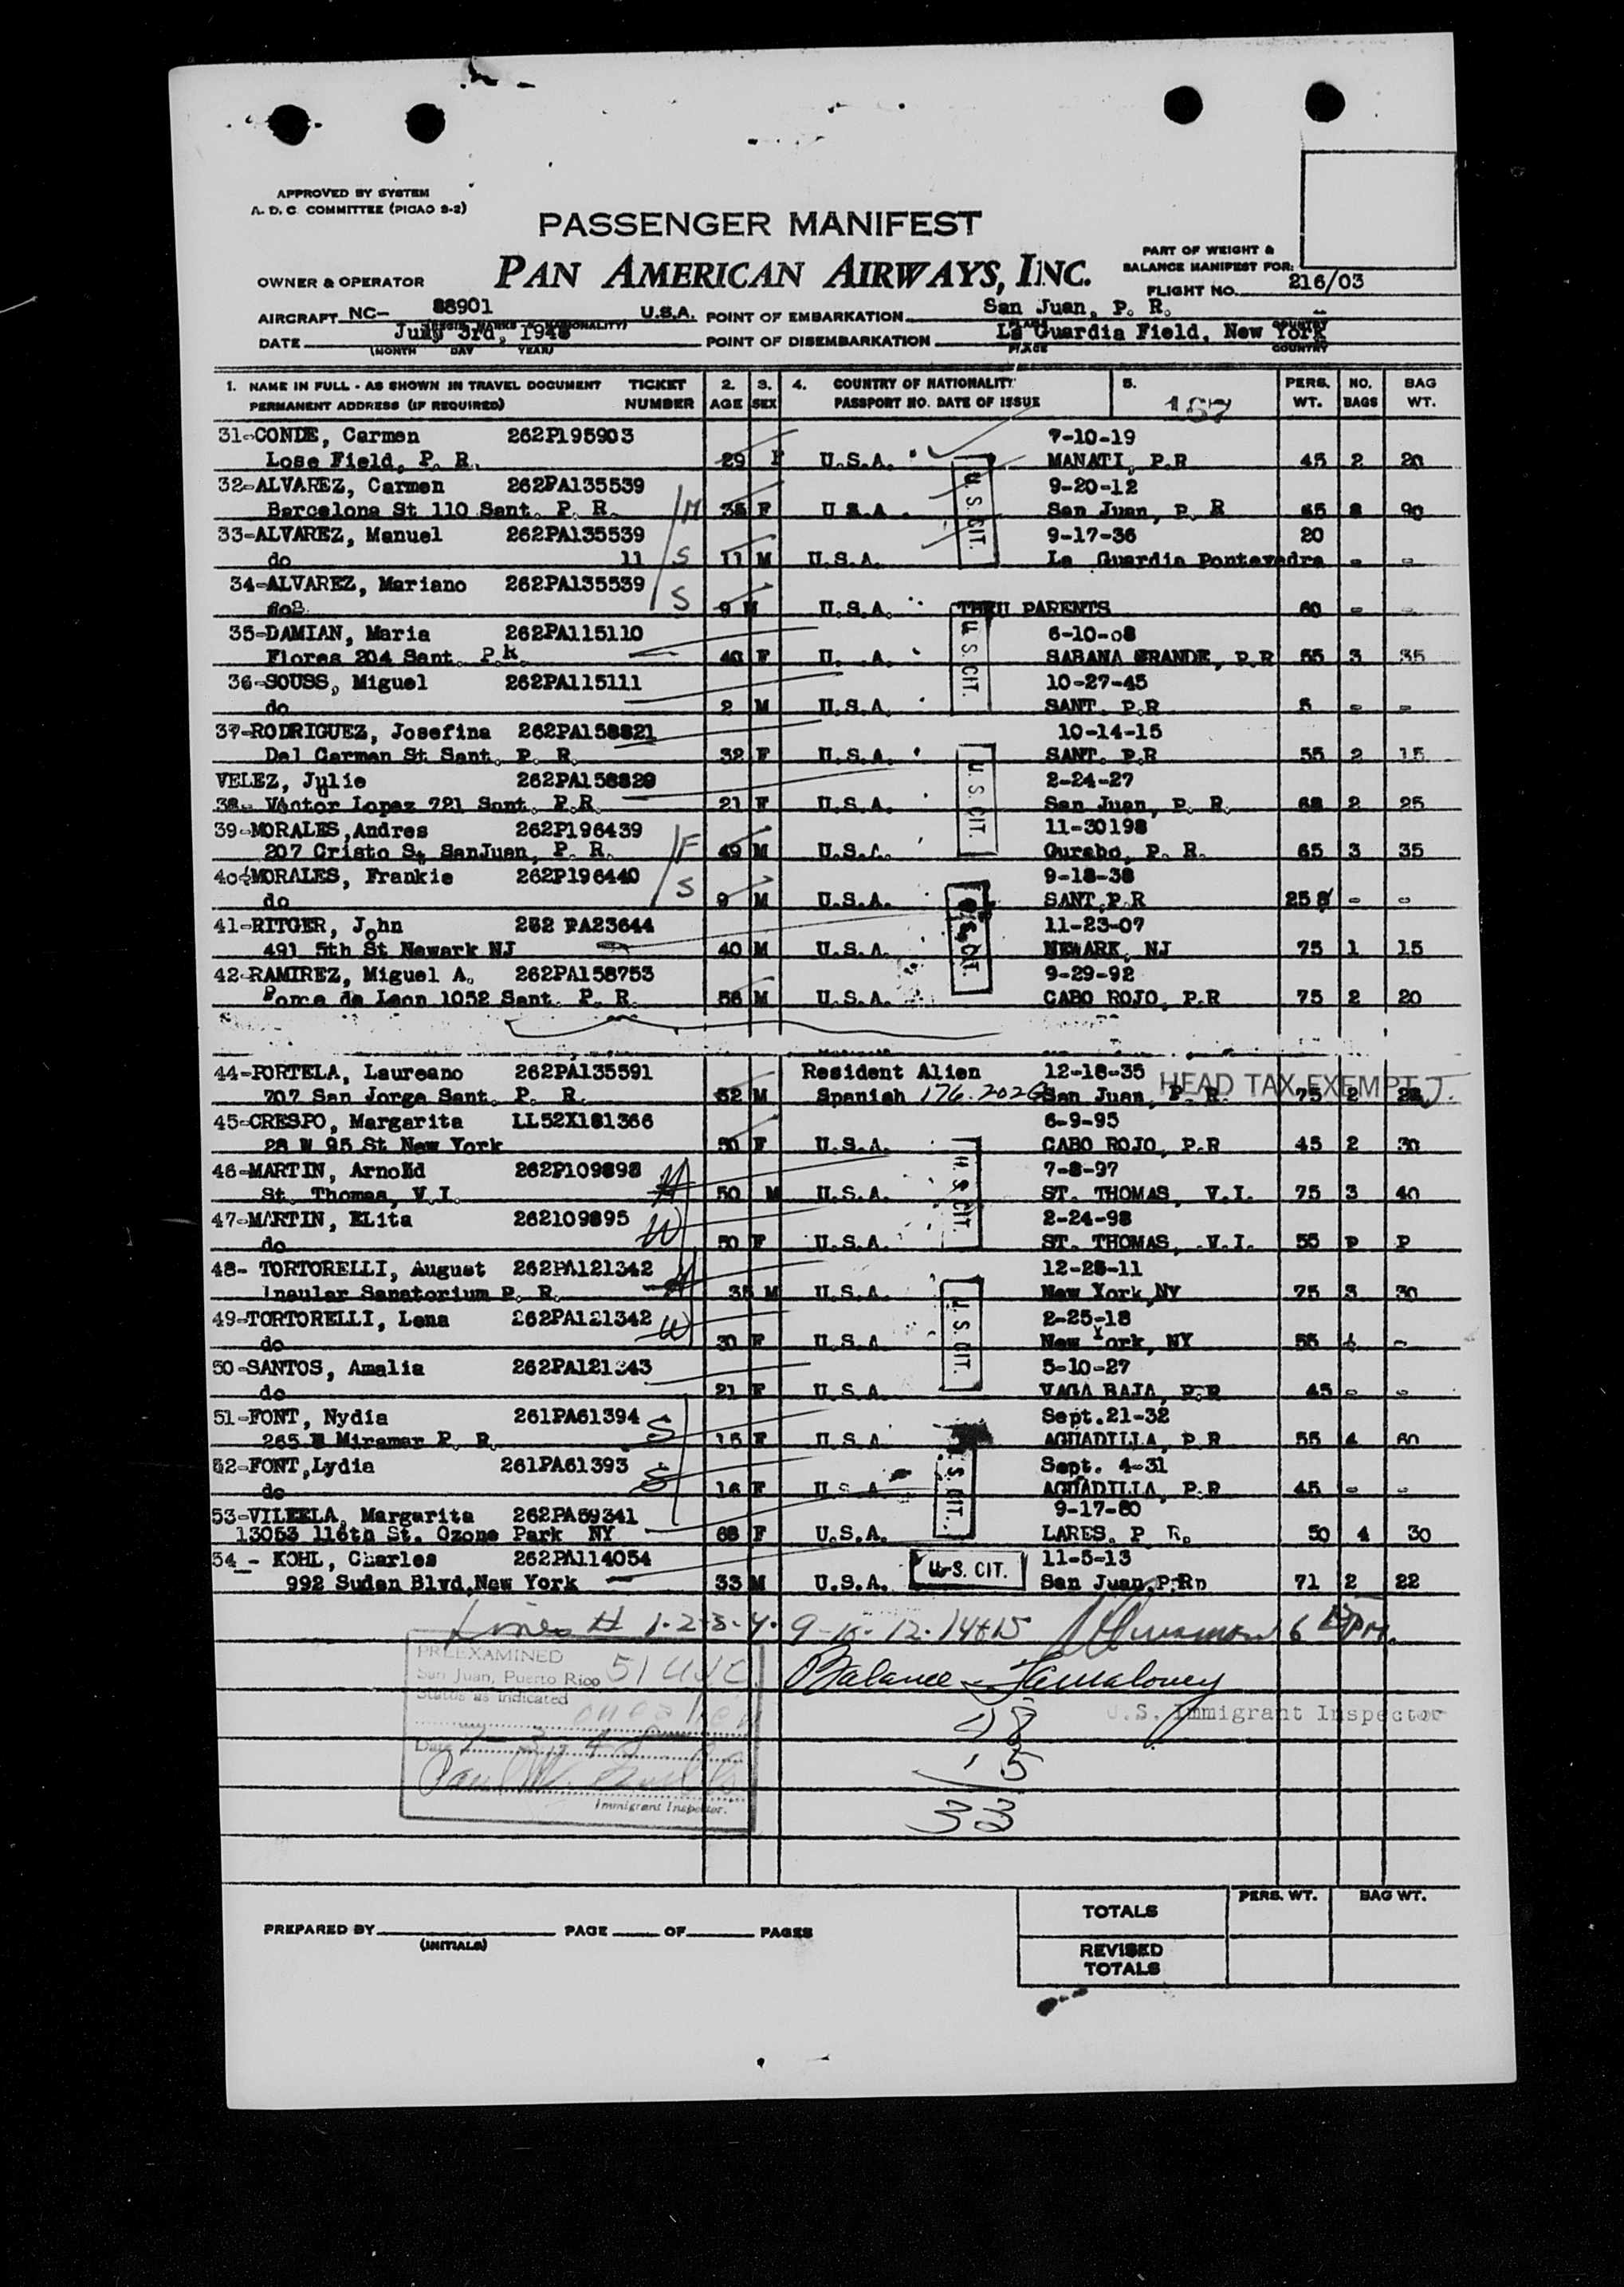 APPROVED BY SYSTEM
A. D. C. COMMITTEE (PICAO S-2)
PASSENGER MANIFEST
PAN AMERICAN AIRWAYS, INC.
PART OF WEIGHT &
BALANCE MANIFEST FOR:
OWNER & OPERATOR
FLIGHT NO. 216/03
AIRCRAFT NC- 88901 U.S.A. POINT OF EMBARKATION San Juan, P. R.
DATE July 3rd, 1948 POINT OF DISEMBARKATION La Guardia Field, New York
(MONTH DAY YEAR) PLACE COUNTRY
1. NAME IN FULL - AS SHOWN IN TRAVEL DOCUMENT TICKET 2. 3. 4. COUNTRY OF NATIONALITY 5. PERS. NO. BAG
PERMANENT ADDRESS (IF REQUIRED) NUMBER AGE SEX PASSPORT NO. DATE OF ISSUE 157 WT. BAGS WT.
31-CONDE, Carmen 262P195903 7-10-19
Lose Field, P. R. 29 F U.S.A. MANATI, P.R 45 2 20
32-ALVAREZ, Carmen 262PA135539 9-20-12
Barcelona St 110 Sant. P. R. M 35 F U S.A. San Juan, P. R 90
33-ALVAREZ, Manuel 262PA135539 9-17-36 20
do 11 S 11 M U.S.A. La Guardia Pontevedra - -
34-ALVAREZ, Mariano 262PA135539
S 9 M U.S.A. THRU PARENTS 60 - -
35-DAMIAN, Maria 262PA115110 6-10-08
Flores 204 Sant. P.R. 40 F U. .A. SABANA GRANDE, P.R 55 3 35
36-SOUSS, Miguel 262PA115111 10-27-45
do 2 M U.S.A. SANT. P.R 5 - -
37-RODRIGUEZ, Josefina 262PA158821 10-14-15
Del Carmen St Sant. P. R. 32 F U.S.A. SANT. P.R 55 2 15
VELEZ, Julie 262PA158829 2-24-27
38- Victor Lopez 721 Sant. P.R. 21 F U.S.A. San Juan, P. R. 68 2 25
39-MORALES,Andres 262P196439 11-30198
207 Cristo St SanJuan, P. R. F 49 M U.S.A. Gurabo, P. R. 65 3 35
40-MORALES, Frankie 262P196440 9-18-38
do S 9 M U.S.A. SANT,P.R 25 - -
41-RITGER, John 262 PA23644 11-23-07
491 5th St Newark NJ 40 M U.S.A. NEWARK, NJ 75 1 15
42-RAMIREZ, Miguel A. 262PA158753 9-29-92
Ponce de Leon 1052 Sant. P. R. 56 M U.S.A. CABO ROJO, P.R 75 2 20
44-PORTELA, Laureano 262PA135591 Resident Alien 12-18-35 HEAD TAX EXEMPT
707 San Jorge Sant. P. R. 52 M Spanish San Juan, P. R. 75 2
45-CRESPO, Margarita LL52X181366 6-9-95
28 W 95 St New York 50 F U.S.A. CABO ROJO, P.R 45 2 30
46-MARTIN, Arnold 262P109898 7-8-97
St. Thomas, V.I. H 50 M U.S.A. ST. THOMAS, V.I. 75 3 40
47-MARTIN, ELita 262109895 2-24-98
do W 50 F U.S.A. ST. THOMAS, .V.I. 55 P P
48- TORTORELLI, August 262PA121342 12-28-11
Insular Sanatorium P. R. H 35 M U.S.A. New York,NY 75 3 30
49-TORTORELLI, Lena 262PA121342 2-25-18
do W 30 F U.S.A New York, NY 55 -
50-SANTOS, Amalia 262PA121343 5-10-27
do 21 F U.S.A. VAGA BAJA, P.R 45 - -
51-FONT, Nydia 261PA61394 Sept.21-32
265 E Miramar P. R. S 15 F U.S.A AGUADILLA, P.R 55 4 60
52-FONT,Lydia 261PA61393 Sept. 4-31
do S 16 F U.S.A AGUADILLA, P.R 45 - -
53-VILELLA, Margarita 262PA59341 9-17-80
13053 116th St. Ozone Park NY 68 F U.S.A. LARES. P R. 50 4 30
54 - KOHL, Charles 262PA114054 11-5-13
992 Sudan Blvd,New York 33 M U.S.A. San Juan,P.R 71 2 22
U.S. CIT.
U.S. CIT.
U.S. CIT.
U.S. CIT.
U.S. CIT.
U.S. CIT.
U.S. CIT.
U.S. CIT.
Lines # 1-2-3-4- 9-10-12-14&15
PREEXAMINED
San Juan, Puerto Rico 51 USC
Status as indicated
one alien
Date 7-3-48
Immigrant Inspector.
Balance
U.S. Immigrant Inspector
48
15
33
PREPARED BY PAGE OF PAGES
(INITIALS)
PERS. WT. BAG WT.
TOTALS
REVISED
TOTALS